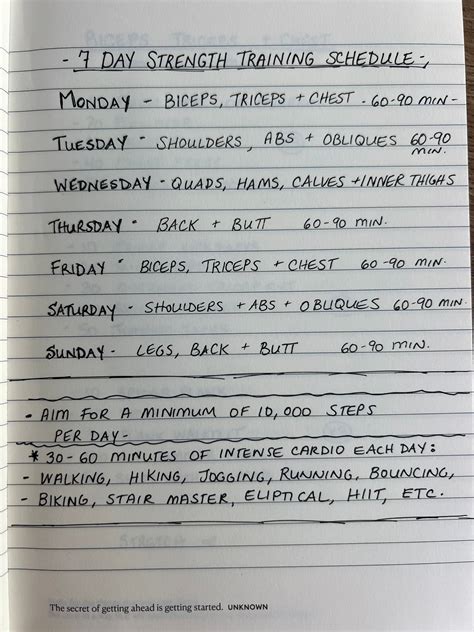 - 7 DAY STRENGTH TRAINING SCHEDULE -
MONDAY - BICEPS, TRICEPS + CHEST - 60-90 MIN -
TUESDAY - SHOULDERS, ABS + OBLIQUES 60-90
MIN.
WEDNESDAY - QUADS, HAMS, CALVES + INNER THIGHS
THURSDAY - BACK + BUTT 60-90 MIN.
FRIDAY - BICEPS, TRICEPS + CHEST 60-90 MIN.
SATURDAY - SHOULDERS + ABS + OBLIQUES 60-90 MIN.
SUNDAY - LEGS, BACK + BUTT 60-90 MIN.
- AIM FOR A MINIMUM OF 10,000 STEPS
PER DAY -
* 30-60 MINUTES OF INTENSE CARDIO EACH DAY:
- WALKING, HIKING, JOGGING, RUNNING, BOUNCING,
- BIKING, STAIR MASTER, ELIPTICAL, HIIT, ETC.
The secret of getting ahead is getting started. UNKNOWN